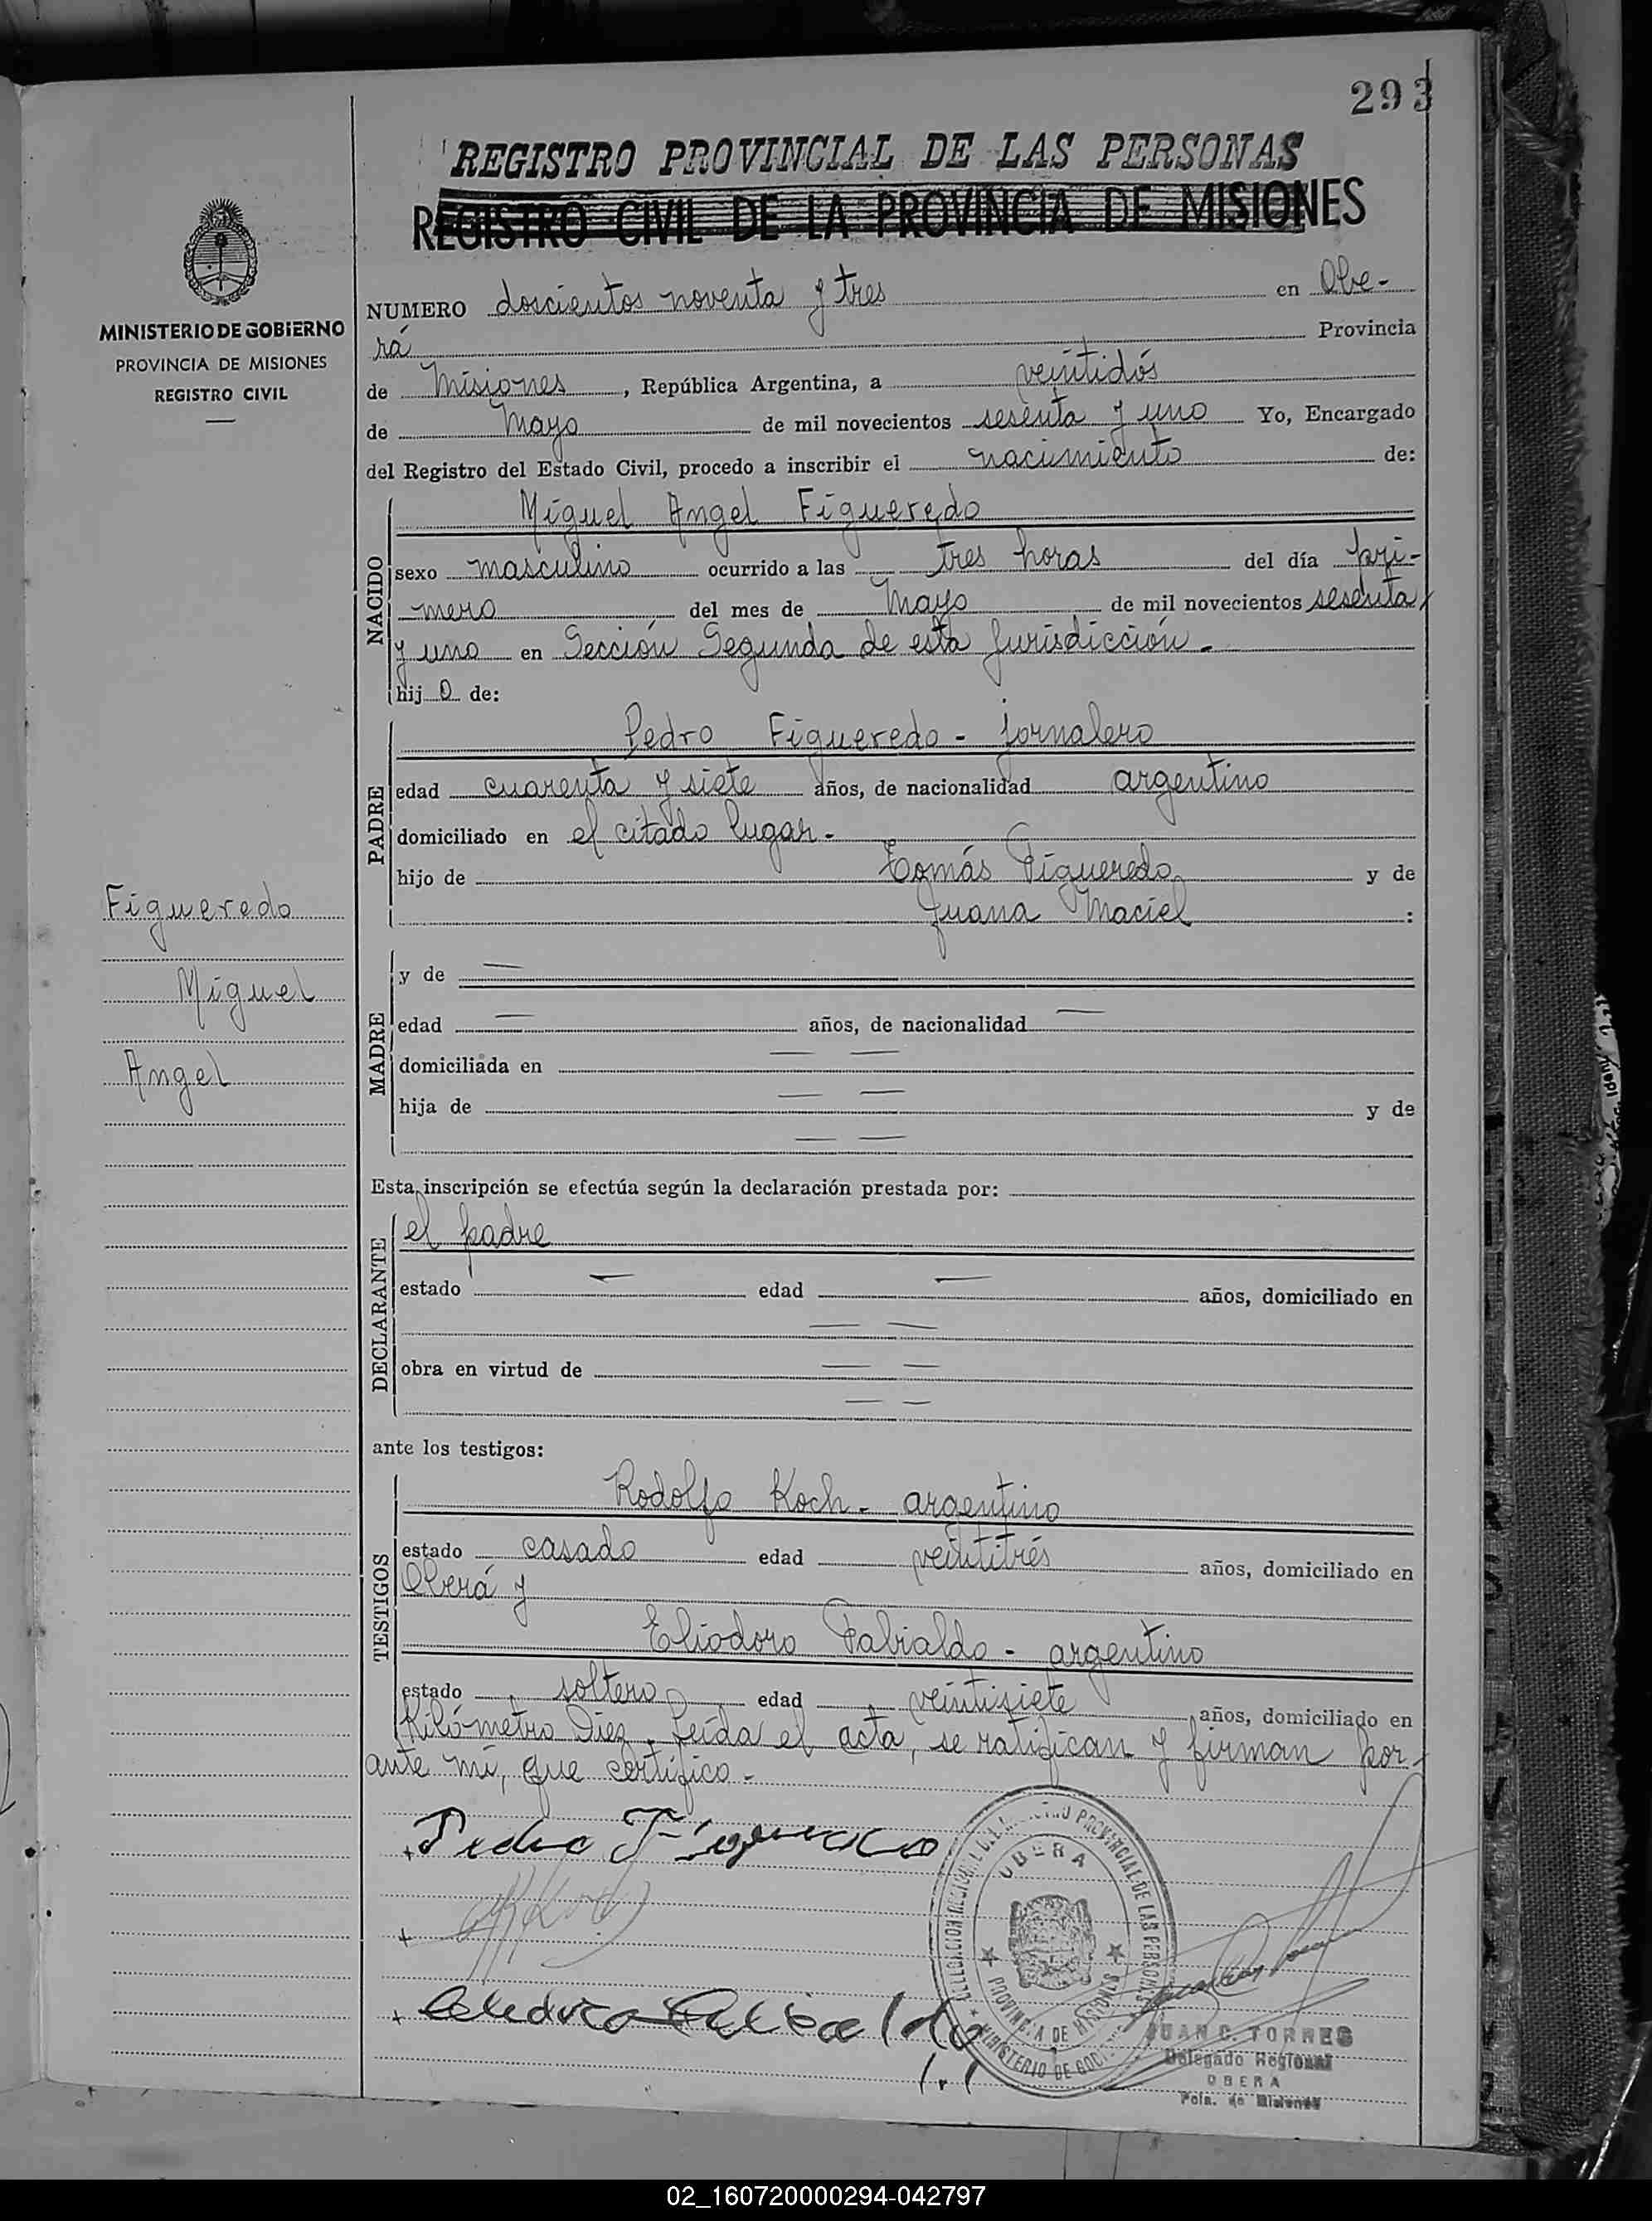 293
REGISTRO PROVINCIAL DE LAS PERSONAS
REGISTRO CIVIL DE LA PROVINCIA DE MISIONES
MINISTERIO DE GOBIERNO
PROVINCIA DE MISIONES
REGISTRO CIVIL
NUMERO doscientos noventa y tres en Obe-
rá Provincia
de Misiones, República Argentina, a veintidós
de Mayo de mil novecientos sesenta y uno Yo, Encargado
del Registro del Estado Civil, procedo a inscribir el nacimiento de:
NACIDO
Miguel Angel Figueredo
sexo masculino ocurrido a las tres horas del día pri-
mero del mes de Mayo de mil novecientos sesenta
y uno en Sección Segunda de esta Jurisdicción.
hij o de:
PADRE
Pedro Figueredo - jornalero
edad cuarenta y siete años, de nacionalidad argentino
domiciliado en el citado lugar-
hijo de Tomás Figueredo y de
Juana Maciel :
Figueredo
Miguel
Angel
MADRE
y de —
edad — años, de nacionalidad —
domiciliada en — —
hija de — — y de
— —
Esta inscripción se efectúa según la declaración prestada por:
DECLARANTE
el padre
estado — edad — años, domiciliado en
— —
obra en virtud de — —
— —
ante los testigos:
TESTIGOS
Rodolfo Koch - argentino
estado casado edad veintitrés años, domiciliado en
Oberá y
Eliodoro Fabialdo - argentino
estado soltero edad veintisiete años, domiciliado en
Kilómetro Diez. Leída el acta, se ratifican y firman por
ante mí, que certifico-
Pedro Figueredo
OBERA
PROVINCIAL DE LAS PERSONAS
PROVINCIA DE MISIONES
MINISTERIO DE GOB
JUAN C. TORRES
Delegado Regional
OBERA
Pcia. de Misiones
02_160720000294-042797